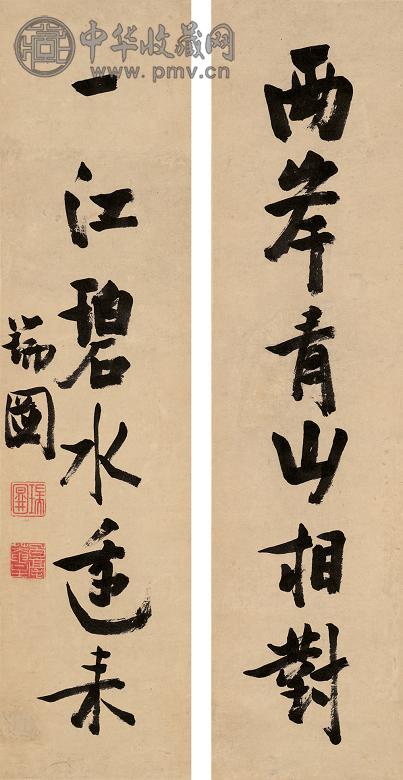 中华收藏网
www.pmv.cn
兩岸青山相對
一江碧水遙来
瑞圖
瑞圖